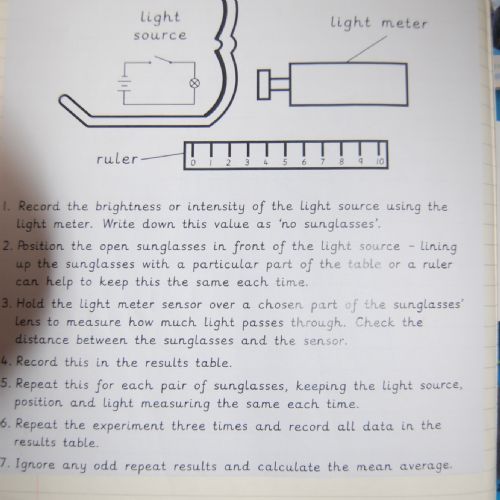 light
source
light meter
ruler
0 1 2 3 4 5 6 7 8 9 10
1. Record the brightness or intensity of the light source using the
light meter. Write down this value as 'no sunglasses'.
2. Position the open sunglasses in front of the light source - lining
up the sunglasses with a particular part of the table or a ruler
can help to keep this the same each time.
3. Hold the light meter sensor over a chosen part of the sunglasses'
lens to measure how much light passes through. Check the
distance between the sunglasses and the sensor.
4. Record this in the results table.
5. Repeat this for each pair of sunglasses, keeping the light source,
position and light measuring the same each time.
6. Repeat the experiment three times and record all data in the
results table.
7. Ignore any odd repeat results and calculate the mean average.